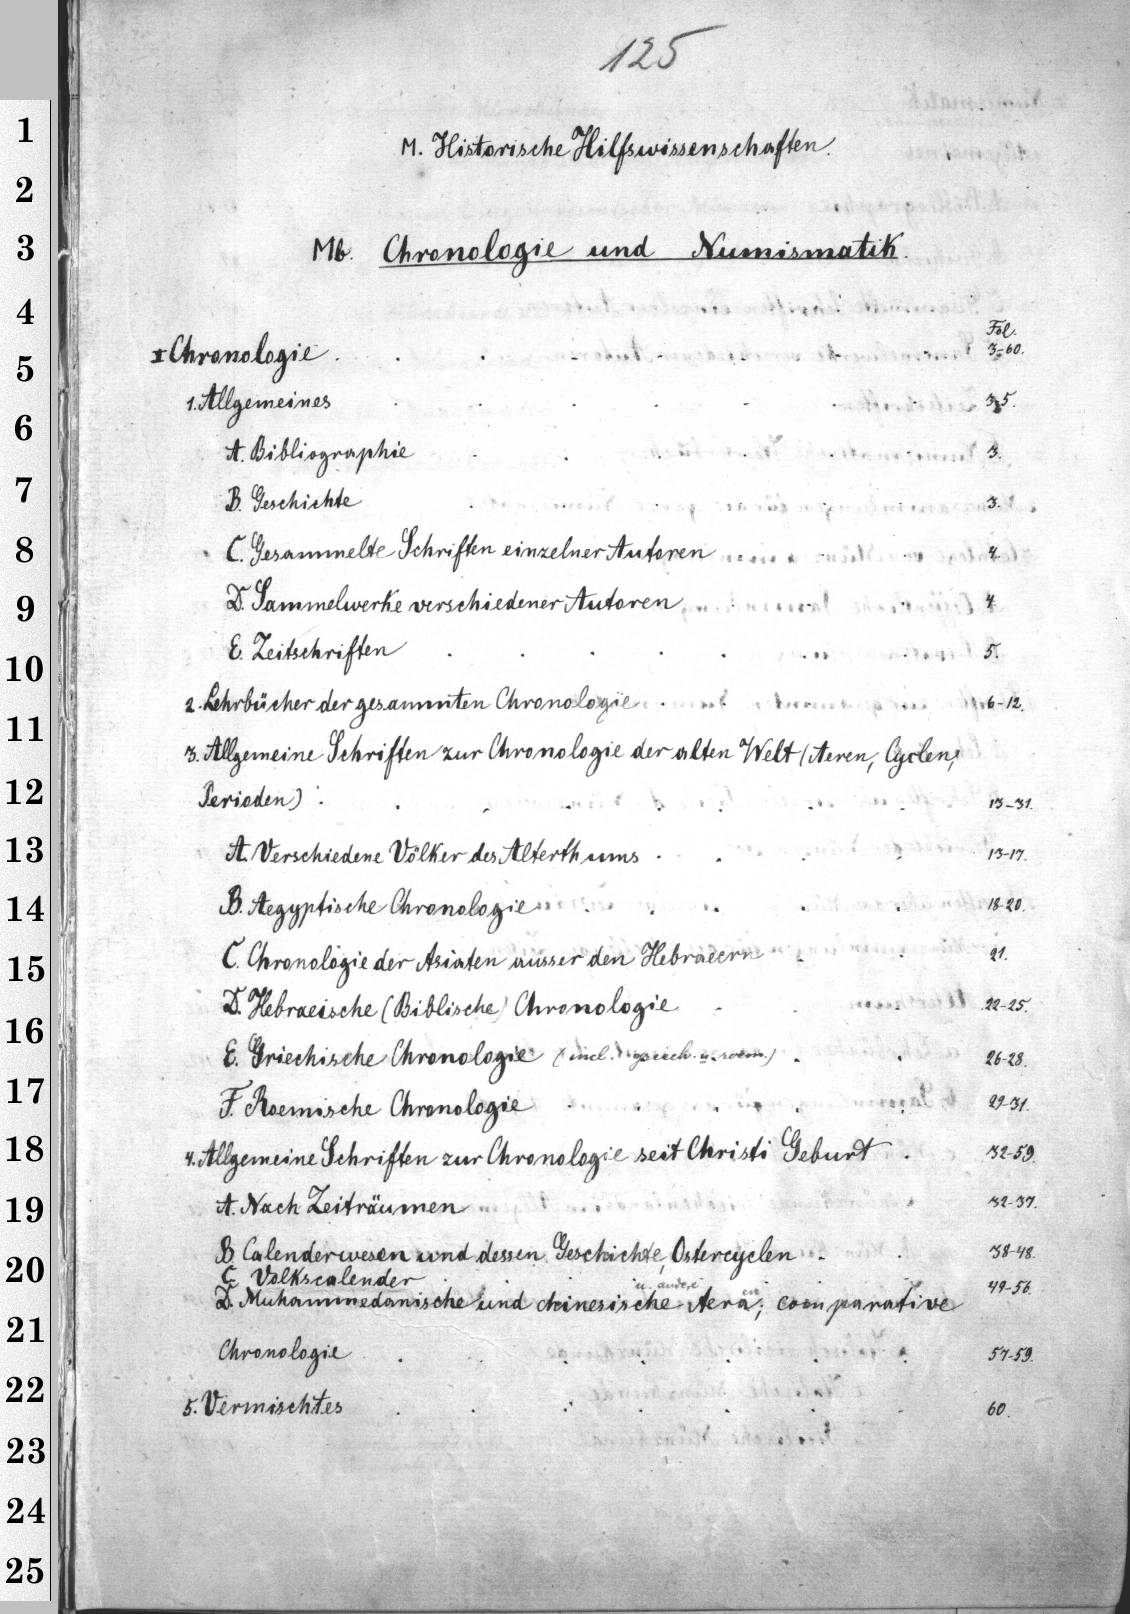 125
M. Historische Hilfswissenschaften.
Mb. Chronologie und Numismatik.
Fol.
I Chronologie . . . . . . . . 3-60.
1. Allgemeines . . . . . . . 3-5.
A. Bibliographie . . . . . . 3.
B. Geschichte . . . . . . 3.
C. Gesammelte Schriften einzelner Autoren . . . 4.
D. Sammelwerke verschiedener Autoren . . . 4.
E. Zeitschriften . . . . . . . 5.
2. Lehrbücher der gesammten Chronologie . . . . 6-12.
3. Allgemeine Schriften zur Chronologie der alten Welt (Aeren, Cyclen,
Perioden) . . . . . . . . 13-31.
A. Verschiedene Völker des Alterthums . . . . 13-17.
B. Aegyptische Chronologie . . . . . 18-20.
C. Chronologie der Asiaten ausser den Hebraeern . . 21.
D. Hebraeische (Biblische) Chronologie . . . 22-25.
E. Griechische Chronologie (incl. griech. u. roem.) . . 26-28.
F. Roemische Chronologie . . . . . 29-31.
4. Allgemeine Schriften zur Chronologie seit Christi Geburt . 32-59.
A. Nach Zeiträumen . . . . . 32-37.
B Calenderwesen und dessen Geschichte, Ostercyclen . . 38-48.
C. Volkscalender 49-56.
u. andere en
D. Muhammedanische und chinesische Aera; comparative
Chronologie . . . . . . . 57-59.
5. Vermischtes . . . . . . . 60.
1
2
3
4
5
6
7
8
9
10
11
12
13
14
15
16
17
18
19
20
21
22
23
24
25